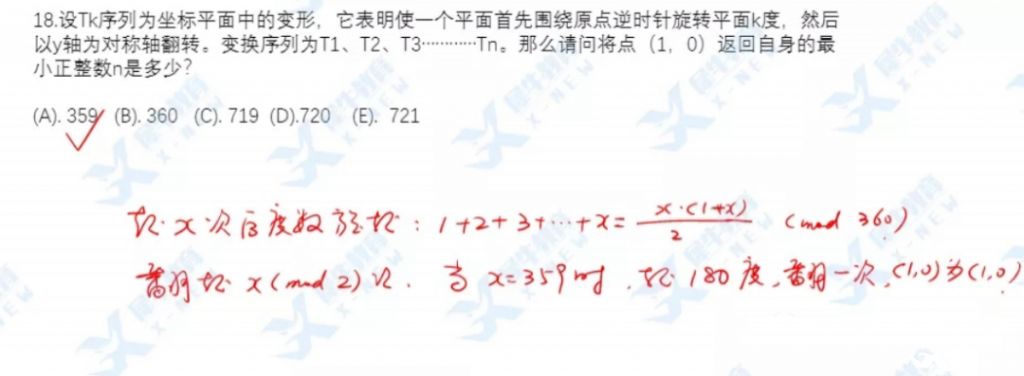 18.设Tk序列为坐标平面中的变形，它表明使一个平面首先围绕原点逆时针旋转平面k度，然后
以y轴为对称轴翻转。变换序列为T1、T2、T3…………Tn。那么请问将点（1，0）返回自身的最
小正整数n是多少？
(A). 359 (B). 360 (C). 719 (D).720 (E). 721
转 x 次后度数旋转：1+2+3+…+x= x·(1+x)/2 (mod 360)
翻转 x (mod 2) 次. 当 x=359时，转 180 度，翻一次，(1,0)为(1,0)
犀牛教育
X-NEW